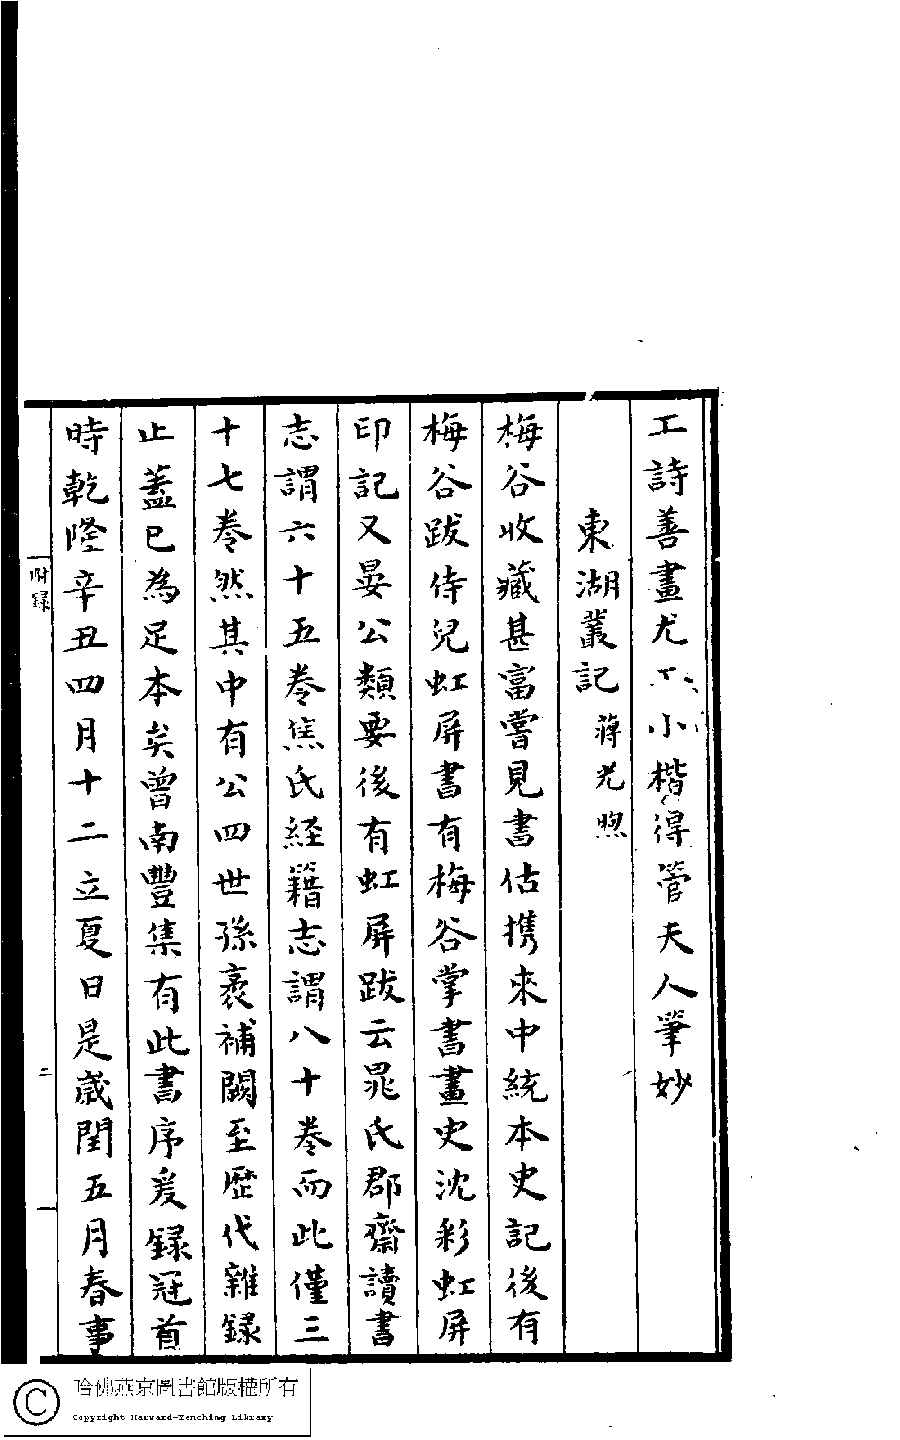 工詩善畫尤工小楷得管夫人筆妙
東湖叢記 蔣光煦
梅谷收藏甚富嘗見書估携來中統本史記後有
梅谷跋侍兒虹屏書有梅谷掌書畫史沈彩虹屏
印記又晏公類要後有虹屏跋云晁氏郡齋讀書
志謂六十五卷焦氏經籍志謂八十卷而此僅三
十七卷然其中有公四世孫袤補闕至歷代雜録
止蓋已為足本矣曾南豐集有此書序爰録冠首
時乾隆辛丑四月十二立夏日是歲閏五月春事
附録
二
哈佛燕京圖書館版權所有
Copyright Harvard-Yenching Library